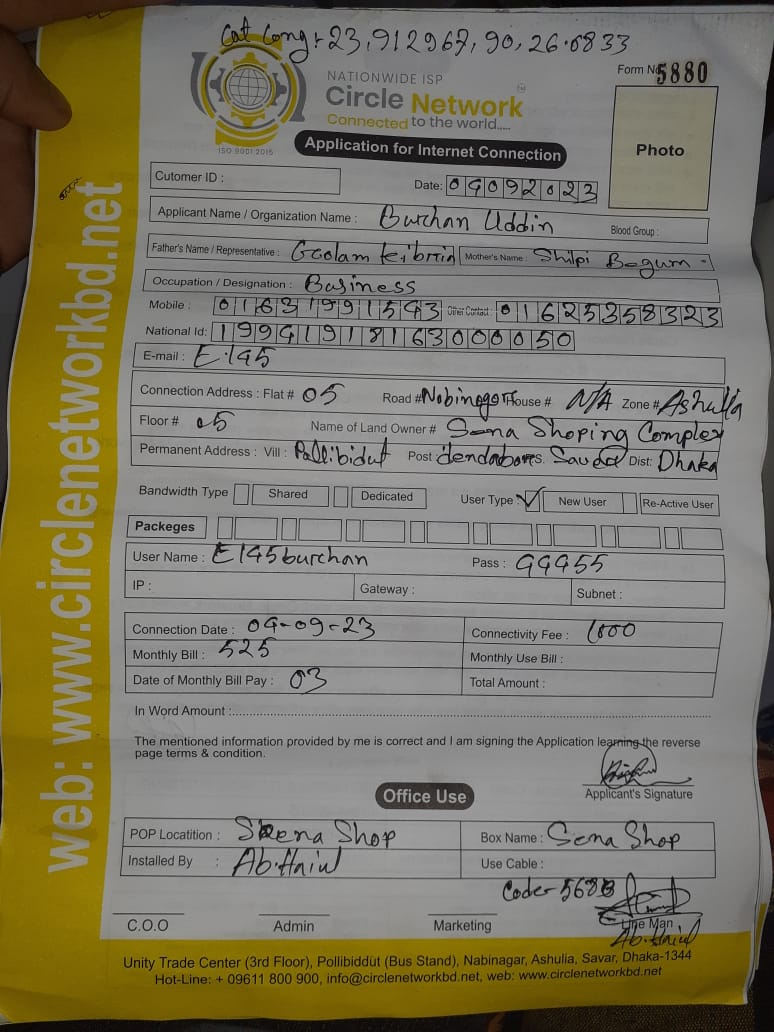 Cat Cong: 23,912967,90,26.6833
Form No 5880
NATIONWIDE ISP
Circle Network
TM
Connected to the world.....
ISO 9001:2015
Application for Internet Connection
Photo
Cutomer ID :
Date: 04092023
Applicant Name / Organization Name : Burhan Uddin
Blood Group :
Father's Name / Representative : Goolam Mother's Name : Shilpi Begum
Occupation / Designation : Business
Mobile : 01631991543 Other Contact : 01625358323
National Id: 19941918163000050
E-mail : E.145
Connection Address : Flat # 05 Road # Nobinogor House # N/A Zone # Ashulia
Floor # 05 Name of Land Owner # Sena Shoping Complex
Permanent Address : Vill : Pallibidut Post : dendabor P.S. Savar Dist: Dhaka
Bandwidth Type Shared Dedicated User Type : New User Re-Active User
Packeges
User Name : E145burhan Pass : 44455
IP : Gateway : Subnet :
Connection Date : 04-09-23 Connectivity Fee : 1000
Monthly Bill : 525 Monthly Use Bill :
Date of Monthly Bill Pay : 03 Total Amount :
In Word Amount :
The mentioned information provided by me is correct and I am signing the Application learning the reverse
page terms & condition.
Applicant's Signature
Office Use
POP Locatition : Sena Shop Box Name : Sena Shop
Installed By : Ab. Use Cable :
Code- 5688
C.O.O Admin Marketing Line Man
Ab.
Unity Trade Center (3rd Floor), Pollibiddut (Bus Stand), Nabinagar, Ashulia, Savar, Dhaka-1344
Hot-Line: + 09611 800 900, info@circlenetworkbd.net, web: www.circlenetworkbd.net
web: www.circlenetworkbd.net